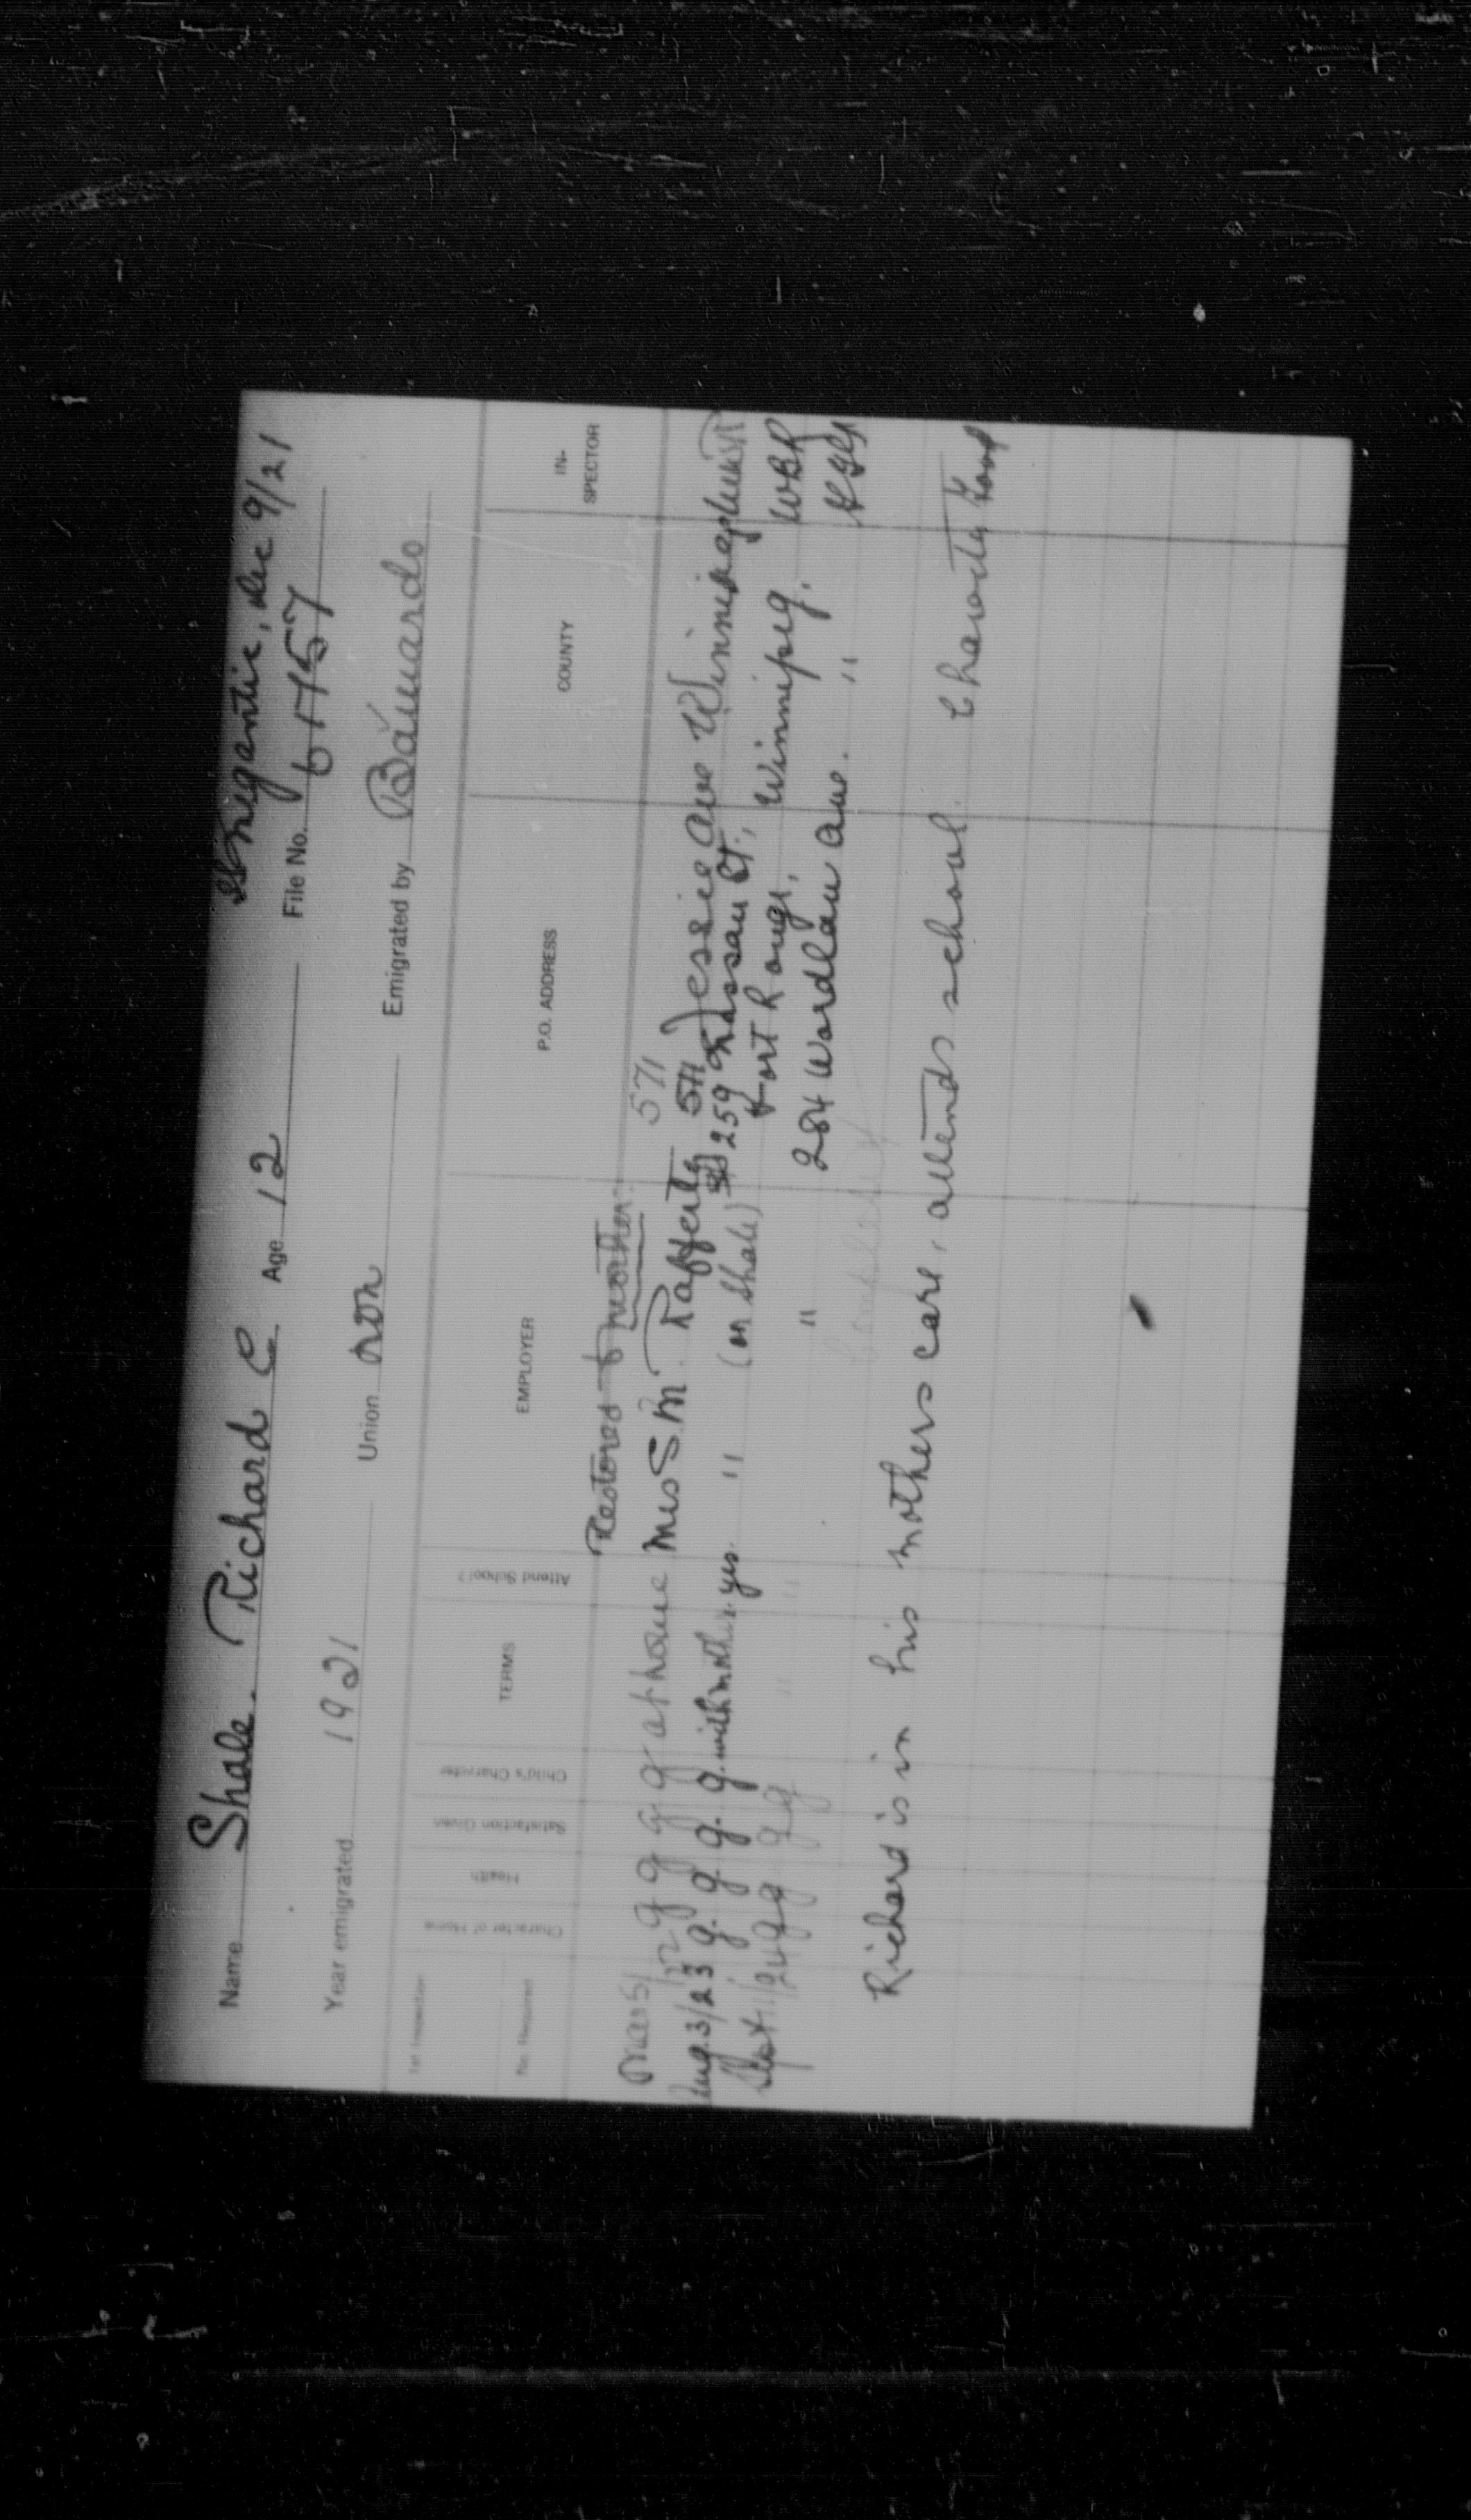 Megantic, Dec 9/21
Name Shale, Richard C Age 12 File No. 61157
Year emigrated 1921 Union non Emigrated by Barnardo
1st Inspection Character of Home Health Satisfaction Given Child's Character TERMS Attend School? EMPLOYER P.O. ADDRESS COUNTY IN-SPECTOR
No. Required
Restored to mother.
571
Mar 5/22 g g g g at home Mrs S. M. Rafferty 571 Jessie Ave Winnipeg
Aug. 3/23 g. g. g. g. with mother. yes. " (or Shale) 259 Nassau St., WBR
Fort Rouge, Winnipeg.
Sept 11/24 g g g g " " " 284 Wardlaw Ave. "
Richard is in his mothers care, attends school. Character Good